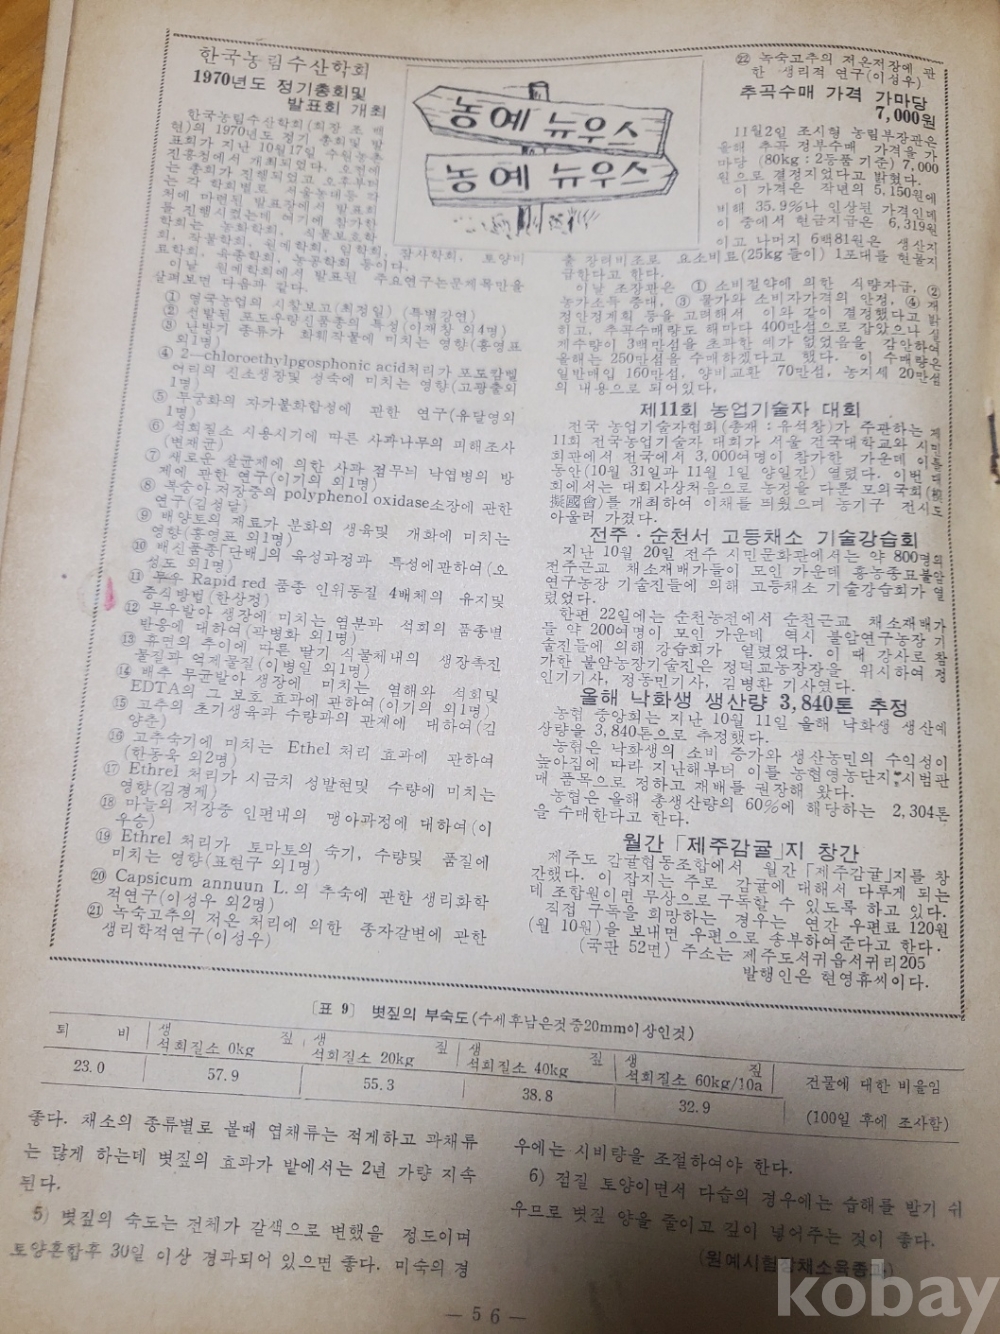 한국농림수산학회
1970년도 정기총회및
발표회 개최
한국농림수산학회(회장 조 백
현)의 1970년도 정기 총회및 발
표회가 지난 10월17일 수원농촌
진흥청에서 개최되였다. 오전에
는 총회가 진행되였고 오후부터
는 각 학회별로 서울농대등 각
처에 마련된 발표장에서 발표회
를 진행시켰는데 여기에 참가한
학회는 농화학회, 식물보호학
회, 작물학회, 원예학회, 임학회, 잠사학회, 토양비
료학회, 육종학회, 농공학회 등이다.
이날 원예학회에서 발표된 주요연구논문제목만을
살펴보면 다음과 같다.
① 영국농업의 시찰보고(최정일) (특별강연)
② 선발된 포도우량신품종의 특성(이재창 외4명)
③ 난방기 종류가 화훼작물에 미치는 영향(홍영표
외1명)
④ 2—chloroethylpgosphonic acid처리가 포도캄벨
어리의 신소생장및 성숙에 미치는 영향(고광출외
1명)
⑤ 무궁화의 자가불화합성에 관한 연구(유달영외
1명)
⑥ 석회질소 시용시기에 따른 사과나무의 피해조사
(변재균)
⑦ 새로운 살균제에 의한 사과 점무늬 낙엽병의 방
제에 관한 연구(이기의 외1명)
⑧ 복숭아 저장중의 polyphenol oxidase소장에 관한
연구(김성달)
⑨ 배양토의 재료가 분화의 생육및 개화에 미치는
영향(홍영표 외1명)
⑩ 배신품종「단배」의 육성과정과 특성에관하여(오
성도 외1명)
⑪ 무우 Rapid red 품종 인위동질 4배체의 유지및
증식방법(한상정)
⑫ 무우발아 생장에 미치는 염분과 석회의 품종별
반응에 대하여(곽병화 외1명)
⑬ 휴면의 추이에 따른 딸기 식물체내의 생장촉진
물질과 억제물질(이병일 외1명)
⑭ 배추 무균발아 생장에 미치는 염해와 석회및
EDTA의 그 보호 효과에 관하여(이기의 외1명)
⑮ 고추의 초기생육과 수량과의 관계에 대하여(김
양춘)
⑯ 고추숙기에 미치는 Ethel 처리 효과에 관하여
(한동욱 외2명)
⑰ Ethrel 처리가 시금치 성발현및 수량에 미치는
영향(김경제)
⑱ 마늘의 저장중 인편내의 맹아과정에 대하여(이
우승)
⑲ Ethrel 처리가 토마토의 숙기, 수량및 품질에
미치는 영향(표현구 외1명)
⑳ Capsicum annuun L.의 추숙에 관한 생리화학
적연구(이성우 외2명)
㉑ 녹숙고추의 저온 처리에 의한 종자갈변에 관한
생리학적연구(이성우)
농예 뉴우스
농예 뉴우스
㉒ 녹숙고추의 저온저장에 관
한 생리적 연구(이성우)
추곡수매 가격 가마당
7,000원
11月2일 조시형 농림부장관은
올해 추곡 정부수매 가격을 가
마당 (80kg : 2등품 기준) 7,000
원으로 결정지었다고 밝혔다.
이 가격은 작년의 5,150원에
비해 35.9%나 인상된 가격인데
이 중에서 현금지급은 6,319원
이고 나머지 6백81원은 생산지
출 장려비조로 요소비료(25kg들이) 1포대를 현물지
급한다고 한다.
이날 조장관은 ① 소비절약에 의한 식량자급, ②
농가소득 증대, ③ 물가와 소비자가격의 안정, ④ 재
정안정계획 등을 고려해서 이와 같이 결정했다고 밝
히고, 추곡수매량도 해마다 400만섬으로 잡았으나 실
제수량이 3백만섬을 초과한 예가 없었음을 감안하여
올해는 250만섬을 수매하겠다고 했다. 이 수매량은
일반매입 160만섬, 양비교환 70만섬, 농지세 20만섬
의 내용으로 되어있다.
제11회 농업기술자 대회
전국 농업기술자협회(총재 : 유석창)가 주관하는 제
11회 전국농업기술자 대회가 서울 건국대학교와 시민
회관에서 전국에서 3,000여명이 참가한 가운데 이틀
동안(10월 31일과 11월 1일 양일간) 열렸다. 이번 대
회에서는 대회사상처음으로 농정을 다룬 모의국회(模
擬國會)를 개최하여 이채를 띄웠으며 농기구 전시도
아울러 가졌다.
전주 · 순천서 고등채소 기술강습회
지난 10월 20일 전주 시민문화관에서는 약 800명의
전주근교 채소재배가들이 모인 가운데 흥농종묘불암
연구농장 기술진들에 의해 고등채소 기술강습회가 열
렸었다.
한편 22일에는 순천농전에서 순천근교 채소재배가
들 약 200여명이 모인 가운데 역시 불암연구농장 기
술진들에 의해 강습회가 열렸었다. 이 때 강사로 참
가한 불암농장기술진은 정덕교농장장을 위시하여 정
인기기사, 정동민기사, 김병환 기사였다.
올해 낙화생 생산량 3,840톤 추정
농협 중앙회는 지난 10월 11일 올해 낙화생 생산예
상량을 3,840톤으로 추정했다.
농협은 낙화생의 소비 증가와 생산농민의 수익성이
높아짐에 따라 지난해부터 이를 농협영농단지 시범판
매 품목으로 정하고 재배를 권장해 왔다.
농협은 올해 총생산량의 60%에 해당하는 2,304톤
을 수매한다고 한다.
월간「제주감귤」지 창간
제주도 감귤협동조합에서 월간「제주감귤」지를 창
간했다. 이 잡지는 주로 감귤에 대해서 다루게 되는
데 조합원이면 무상으로 구독할 수 있도록 하고 있다.
직접 구독을 희망하는 경우는 연간 우편료 120원
(월 10원)을 보내면 우편으로 송부하여준다고 한다.
(국판 52면) 주소는 제주도서귀읍서귀리205
발행인은 현영휴씨이다.
〔표 9〕 볏짚의 부숙도(수세후남은것중20mm이상인것)
퇴 비 생 짚 생 짚 생 짚 생 짚
석회질소 0kg 석회질소 20kg 석회질소 40kg 석회질소 60kg/10a 건물에 대한 비율임
23.0 57.9 55.3 38.8 32.9 (100일 후에 조사함)
좋다. 채소의 종류별로 볼때 엽채류는 적게하고 과채류
는 많게 하는데 볏짚의 효과가 밭에서는 2년 가량 지속
된다.
5) 볏짚의 숙도는 전체가 갈색으로 변했을 정도이며
토양혼합후 30일 이상 경과되어 있으면 좋다. 미숙의 경
우에는 시비량을 조절하여야 한다.
6) 점질 토양이면서 다습의 경우에는 습해를 받기 쉬
우므로 볏짚 양을 줄이고 깊이 넣어주는 것이 좋다.
(원예시험장채소육종과)
— 56 —
kobay